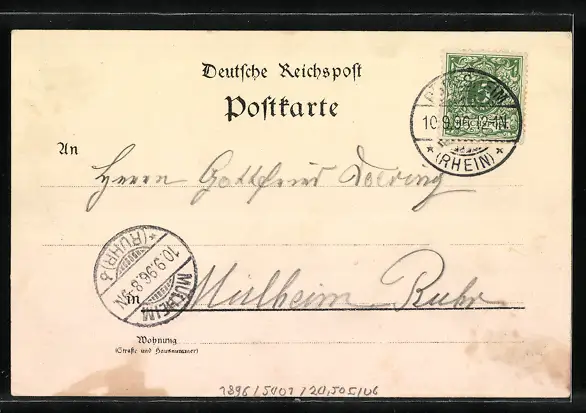 Deutsche Reichspost
Postkarte
10.9.96. 12-1N
* (RHEIN) *
An
Herrn Gottfried
MÜLHEIM
10.9.96. 8-9N
(RUHR)
in
Mülheim Ruhr
Wohnung
(Straße und Hausnummer)
1896/5401/20,505/06